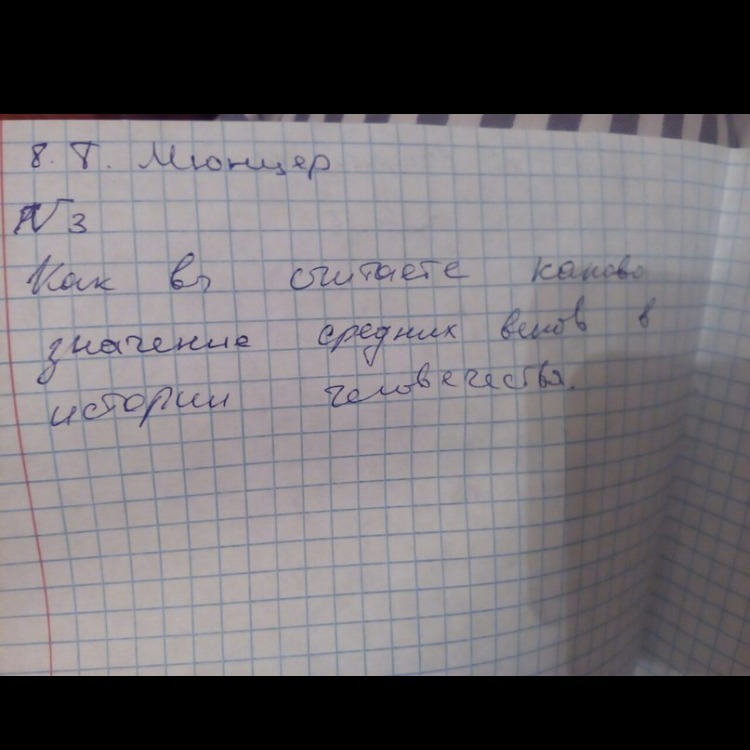 8. Т. Мюнцер
№3
Как вы считаете каково
значение средних веков в
истории человечества.